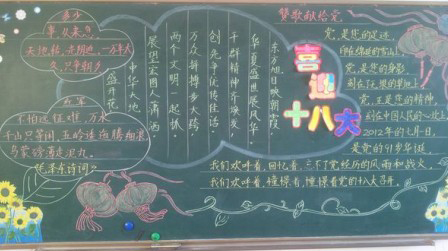 多少
事,从来急
天地转,光阴迫,一万年太
久,只争朝夕
长军
不怕远征难,万水
千山只等闲,五岭逶迤腾细浪,
乌蒙磅礴走泥丸。
毛泽东诗词
东方旭日映朝霞
华夏盛世展风华
干群精神齐焕发
创先争优传佳话
万众拼搏步大跨
两个文明一起抓
展望宏图人潇洒
中华大地
盛开花
喜迎
十八大
赞歌献给党
党,是您的足迹,
党,是您的身影,
党,正是您的精神
刻在中国人民的心地上,
2012年的七月一日,
是党的91岁华诞
我们欢呼着,回忆着,忘不了党经历的风雨和战火,
我们欢呼着,憧憬着,憧憬着党的十八大召开。